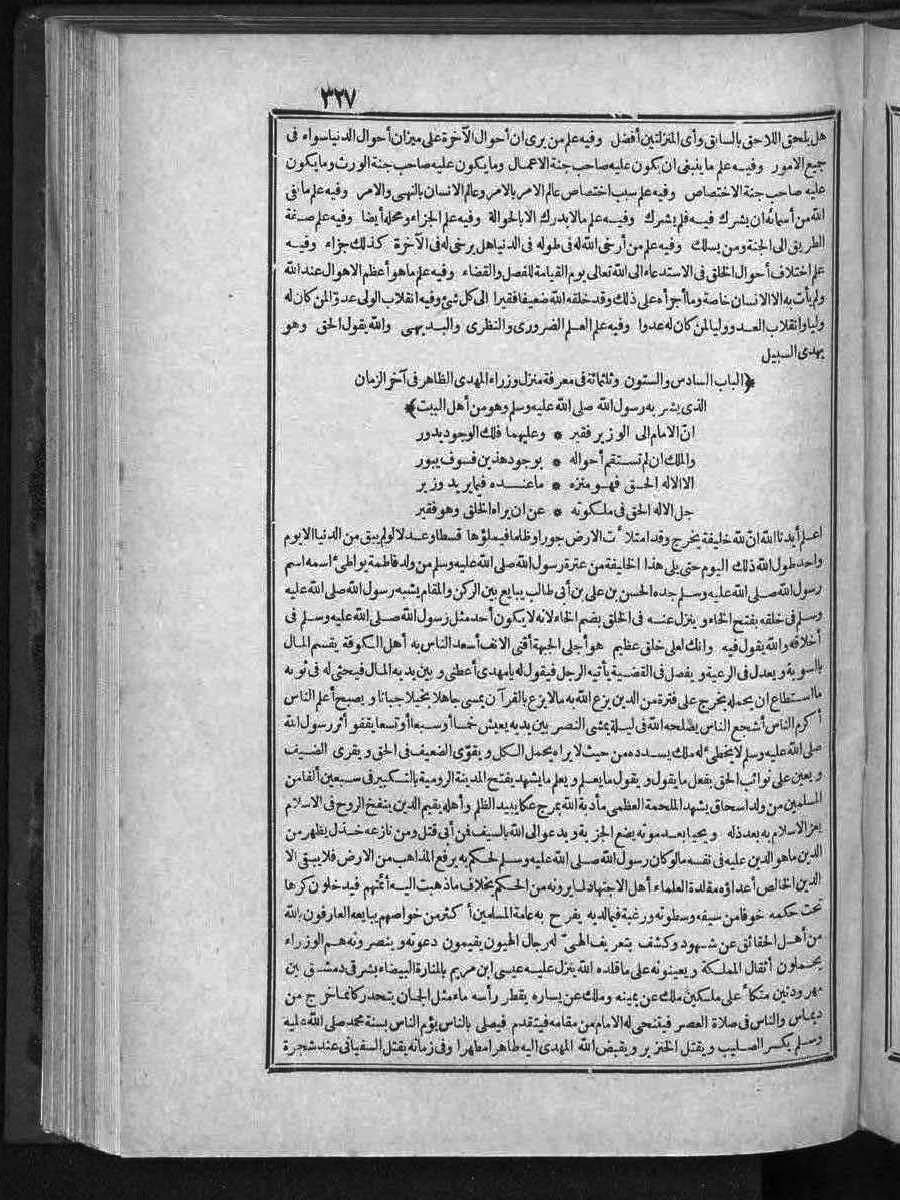 ٣٢٧
هل يلحق اللاحق بالسابق وأى المنزلتين أفضل وفيه علم من يرى ان أحوال الآخرة على ميزان أحوال الدنيا سواء فى
جميع الامور وفيه علم ما ينبغى ان يكون عليه صاحب جنة الاعمال وما يكون عليه صاحب جنة الورث وما يكون
عليه صاحب جنة الاختصاص وفيه علم سبب اختصاص عالم الامر بالامر وعالم الانسان بالنهى والامر وفيه علم ما نفى
الله من أسمائه ان يشرك فيه فلم يشرك وفيه علم ما لا يدرك الا بالحوالة وفيه علم الجزاء ومحله أيضا وفيه علم صفة
الطريق الى الجنة ومن يسلك وفيه علم من أرخى الله له فى طوله فى الدنيا هل يرخى له فى الآخرة كذلك جزاء وفيه
علم اختلاف أحوال الخلق فى الاستدعاء الى الله تعالى يوم القيامة للفصل والقضاء وفيه علم ما هو أعظم الاهوال عند الله
ولم يأت به الا الانسان خاصة وما أجرأه على ذلك وقد خلقه الله ضعيفا فقيرا الى كل شئ وفيه انقلاب الولى عدوا لمن كان له
وليا وانقلاب العدو وليا لمن كان له عدوا وفيه علم العلم الضرورى والنظرى والبديهى والله يقول الحق وهو
يهدى السبيل
﴿الباب السادس والستون وثلثمائة فى معرفة منزل وزراء المهدى الظاهر فى آخر الزمان
الذى بشر به رسول الله صلى الله عليه وسلم وهو من أهل البيت﴾
انّ الامام الى الوزير فقير * وعليهما فلك الوجود يدور
والملك ان لم تستقم أحواله * بوجود هذين فسوف يبور
الا الاله الحق فهو منزه * ما عنده فيما يريد وزير
جل الاله الحق فى ملكوته * عن ان يراه الخلق وهو فقير
اعلم أيدنا الله ان لله خليفة يخرج وقد امتلأت الارض جورا وظلما فيملؤها قسطا وعدلا لو لم يبق من الدنيا الا يوم
واحد طول الله ذلك اليوم حتى يلى هذا الخليفة من عترة رسول الله صلى الله عليه وسلم من ولد فاطمة يواطئ اسمه اسم
رسول الله صلى الله عليه وسلم جده الحسن بن على بن أبى طالب يبايع بين الركن والمقام يشبه رسول الله صلى الله عليه
وسلم فى خلقه بفتح الخاء وينزل عنه فى الخلق بضم الخاء لانه لا يكون أحد مثل رسول الله صلى الله عليه وسلم فى
أخلاقه والله يقول فيه وانك لعلى خلق عظيم هو أجلى الجبهة أقنى الانف أسعد الناس به أهل الكوفة يقسم المال
بالسوية ويعدل فى الرعية ويفصل فى القضية يأتيه الرجل فيقول له يا مهدى أعطنى وبين يديه المال فيحثى له فى ثوبه
ما استطاع ان يحمله يخرج على فترة من الدين يزع الله به ما لا يزع بالقرآن يمسى جاهلا بخيلا جبانا ويصبح أعلم الناس
أكرم الناس أشجع الناس يصلحه الله فى ليلة يمشى النصر بين يديه يعيش خمسا أو سبعا أو تسعا يقفو أثر رسول الله
صلى الله عليه وسلم لا يخطئ له ملك يسدده من حيث لا يراه يحمل الكل ويقوّى الضعيف فى الحق ويقرى الضيف
ويعين على نوائب الحق يفعل ما يقول ويقول ما يعلم ويعلم ما يشهد يفتح المدينة الرومية بالتكبير فى سبعين ألفا من
المسلمين من ولد اسحاق يشهد الملحمة العظمى مأدبة الله بمرج عكا يبيد الظلم وأهله يقيم الدين ينفخ الروح فى الاسلام
يعز الاسلام به بعد ذله ويحيا بعد موته يضع الجزية ويدعو الى الله بالسيف فمن أبى قتل ومن نازعه خذل يظهر من
الدين ما هو الدين عليه فى نفسه ما لو كان رسول الله صلى الله عليه وسلم لحكم به يرفع المذاهب من الارض فلا يبقى الا
الدين الخالص أعداؤه مقلدة العلماء أهل الاجتهاد لما يرونه من الحكم بخلاف ما ذهبت اليه أئمتهم فيدخلون كرها
تحت حكمه خوفا من سيفه وسطوته ورغبة فيما لديه يفرح به عامة المسلمين أكثر من خواصهم يبايعه العارفون بالله
من أهل الحقائق عن شهود وكشف بتعريف الهىّ له رجال الهيون يقيمون دعوته وينصرونه هم الوزراء
يحملون أثقال المملكة ويعينونه على ما قلده الله ينزل عليه عيسى ابن مريم بالمنارة البيضاء بشرقى دمشق بين
مهرودتين متكأ على ملكين ملك عن يمينه وملك عن يساره يقطر رأسه ماء مثل الجمان يتحدر كانما خرج من
ديماس والناس فى صلاة العصر فيتنحى له الامام من مقامه فيتقدم فيصلى بالناس يؤم الناس بسنة محمد صلى الله عليه
وسلم يكسر الصليب ويقتل الخنزير ويقبض الله المهدى اليه طاهرا مطهرا وفى زمانه يقتل السفيانى عند شجرة